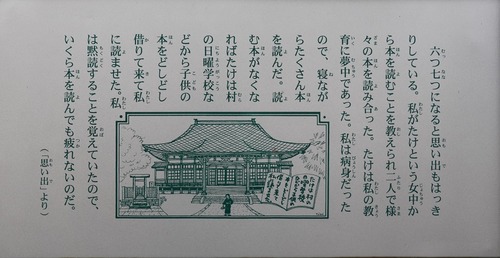 六つ七つになると思い出もはっき
りしている。私がたけという女中か
ら本を読むことを教えられ二人で様
々の本を読み合った。たけは私の教
育に夢中であった。私は病身だった
ので、寝なが
らたくさん本
を読んだ。読
む本がなくな
ればたけは村
の日曜学校な
どから子供の
本をどしどし
借りて来て私
に読ませた。私
は黙読することを覚えていたので、
いくら本を読んでも疲れないのだ。
（「思い出」より）
たけは村の
日曜学校